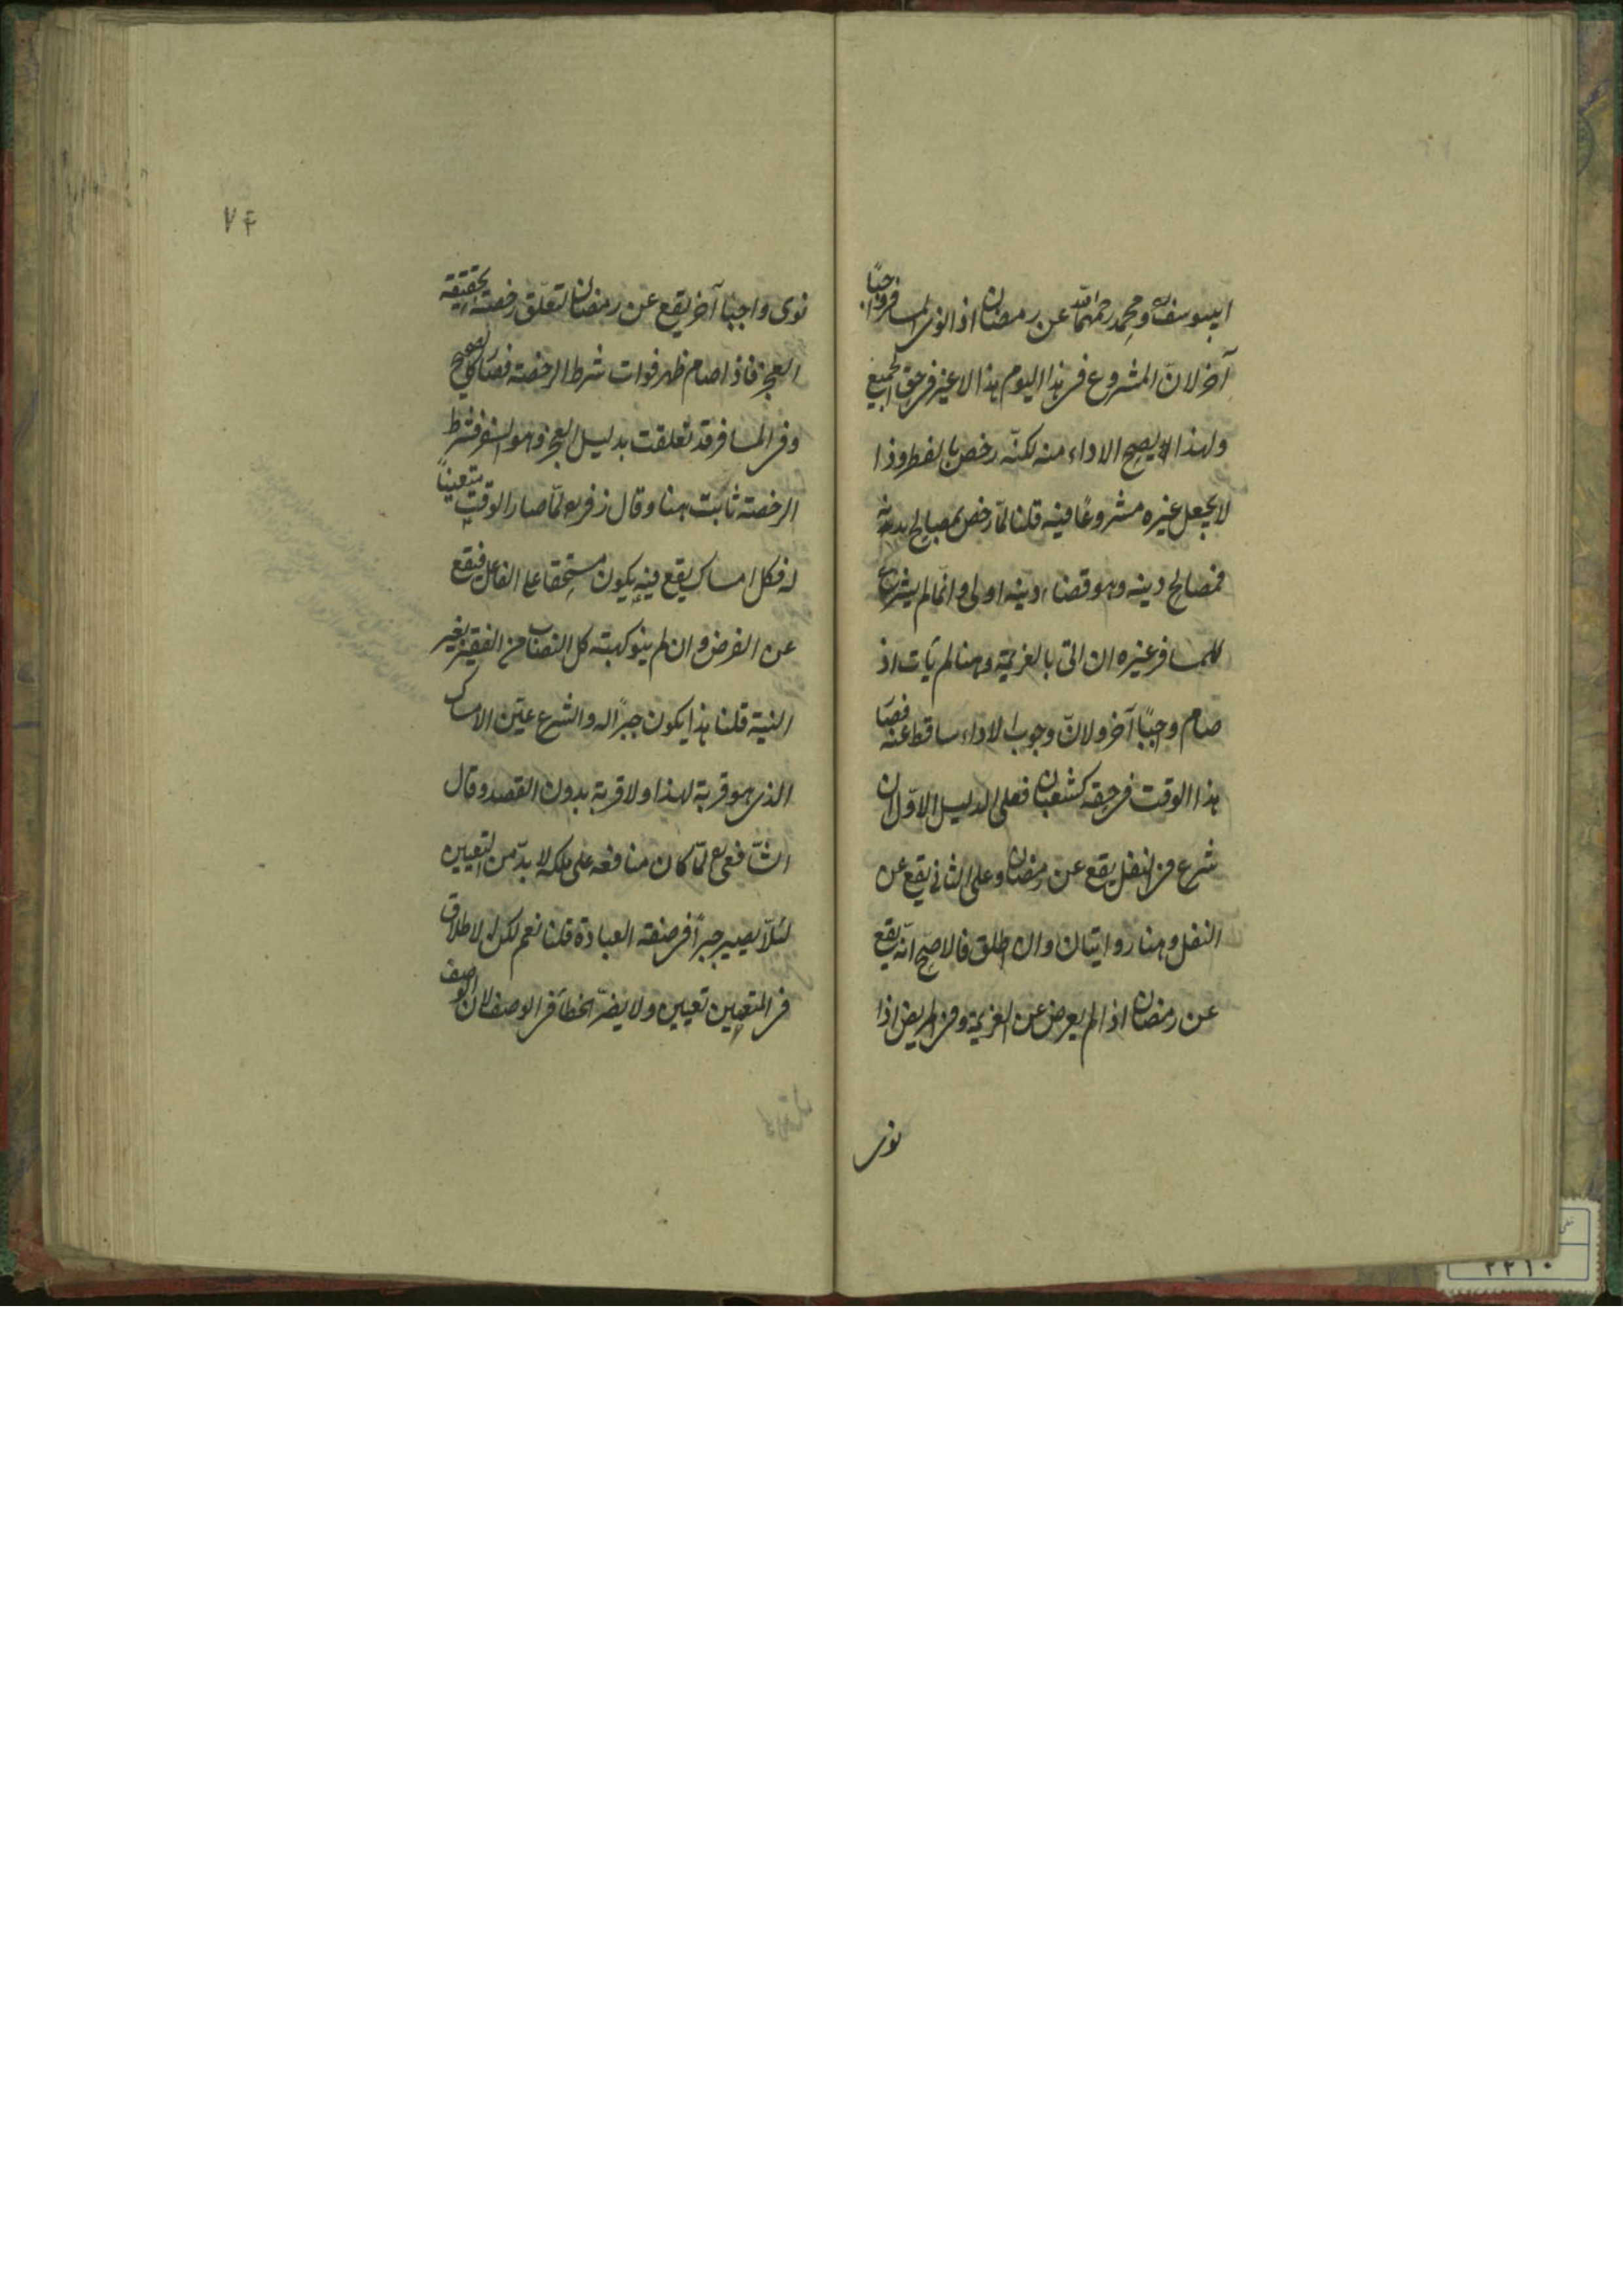 ابيوسف ومحمد رحمهما الله عن رمضان اذا نوى المسافر واجبًا
آخر لانّ المشروع فى هذا اليوم هذا لا غير فى حق الجميع
ولهذا يصح الاداء منه لكنّه رخص بالفطر وذا
لا يجعل غيره مشروعًا فيه قلنا لمّا رخص لمصالح بدنه
فمصالح دينه وهو قضاء دينه اولى وانّما لم يشرع
للمسافر غيره ان اتى بالعزيمة وهنا لم يأت اذ
صام واجبًا آخر ولانّ وجوب الاداء ساقط عنه فصار
هذا الوقت فى حقه كشعبان فعلى الدليل الاوّل ان
شرع فى النفل يقع عن رمضان وعلى الثانى يقع عن
النفل وهنا روايتان وان اطلق فالاصحّ انّه يقع
عن رمضان اذا لم يعرض عن العزيمة وفى المريض اذا
نوى
٧٤
نوى واجبا آخر يقع عن رمضان لتعلّق رخصته بحقيقة
العجز فاذا صام ظهر فوات شرط الرخصة فصار كالصحيح
وفى المسافر قد تعلقت بدليل العجز وهو السفر فشرط
الرخصة ثابت هنا وقال زفر رح لمّا صار الوقت متعينًا
له فكل امساك يقع فيه يكون مستحقا على الفاعل فيقع
عن الفرض وان لم ينو كهبة كل النصاب من الفقير بغير
النية قلنا هذا يكون جبرًا له والشرع عيّن الامساك
الذى هو قربة لهذا ولا قربة بدون القصد وقال
الشّافعى رح لمّا كان منافعه على ملكه لا بدّ من التعيين
لئلّا يصير جبرًا فى صفة العبادة قلنا نعم لكن الاطلاق
فى المتعين تعيين ولا يضرّ الخطأ فى الوصف لان الوصف
٢٢١٠